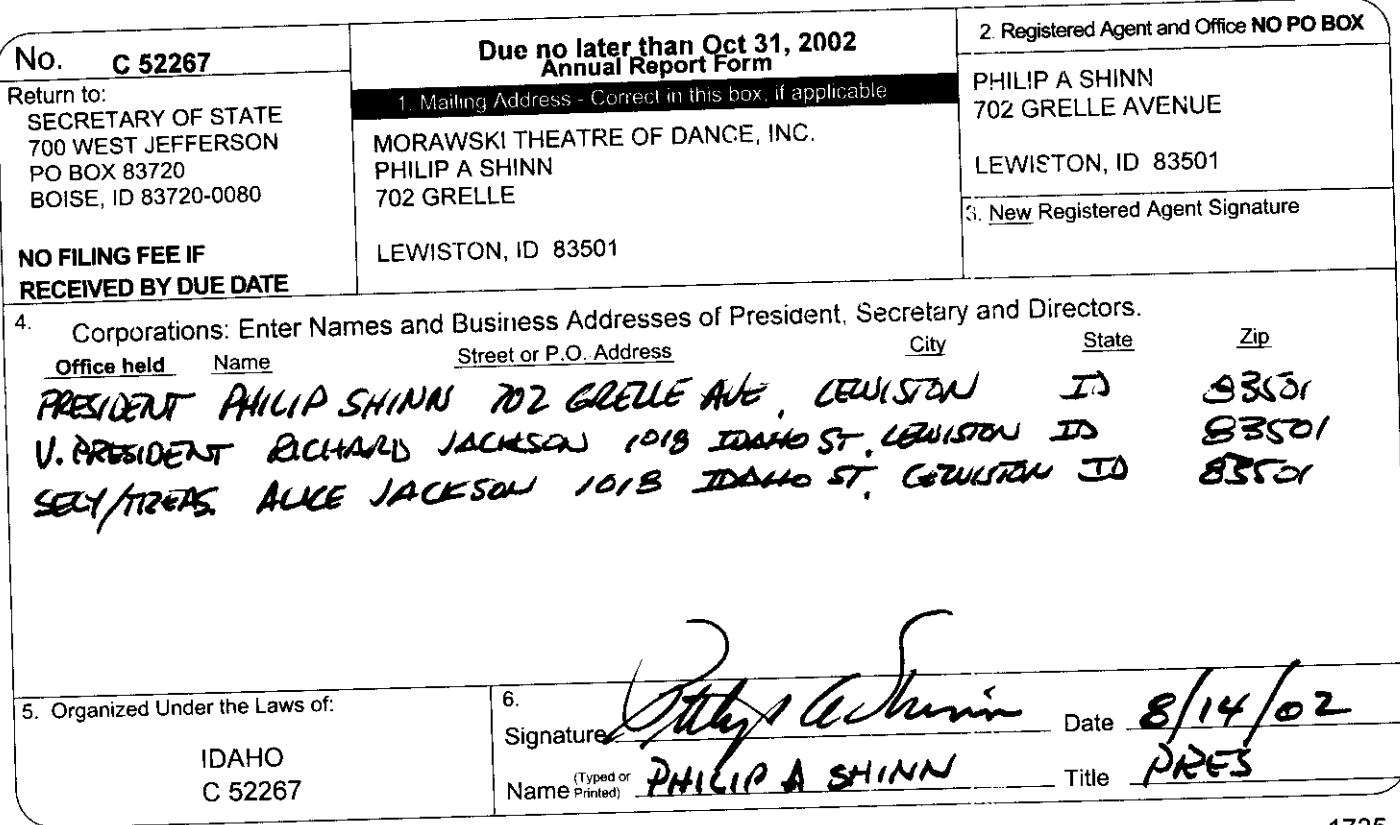 No. C 52267
Return to:
SECRETARY OF STATE
700 WEST JEFFERSON
PO BOX 83720
BOISE, ID 83720-0080
NO FILING FEE IF
RECEIVED BY DUE DATE
Due no later than Oct 31, 2002
Annual Report Form
1. Mailing Address - Correct in this box, if applicable
MORAWSKI THEATRE OF DANCE, INC.
PHILIP A SHINN
702 GRELLE
LEWISTON, ID 83501
2. Registered Agent and Office NO PO BOX
PHILIP A SHINN
702 GRELLE AVENUE
LEWISTON, ID 83501
3. New Registered Agent Signature
4. Corporations: Enter Names and Business Addresses of President, Secretary and Directors.
Office held Name Street or P.O. Address City State Zip
PRESIDENT PHILIP SHINN 702 GRELLE AVE, LEWISTON ID 83501
V. PRESIDENT RICHARD JACKSON 1018 IDAHO ST, LEWISTON ID 83501
SECY/TREAS. ALICE JACKSON 1018 IDAHO ST, LEWISTON ID 83501
5. Organized Under the Laws of:
IDAHO
C 52267
6.
Signature Philip A Shinn Date 8/14/02
Name (Typed or Printed) PHILIP A SHINN Title PRES